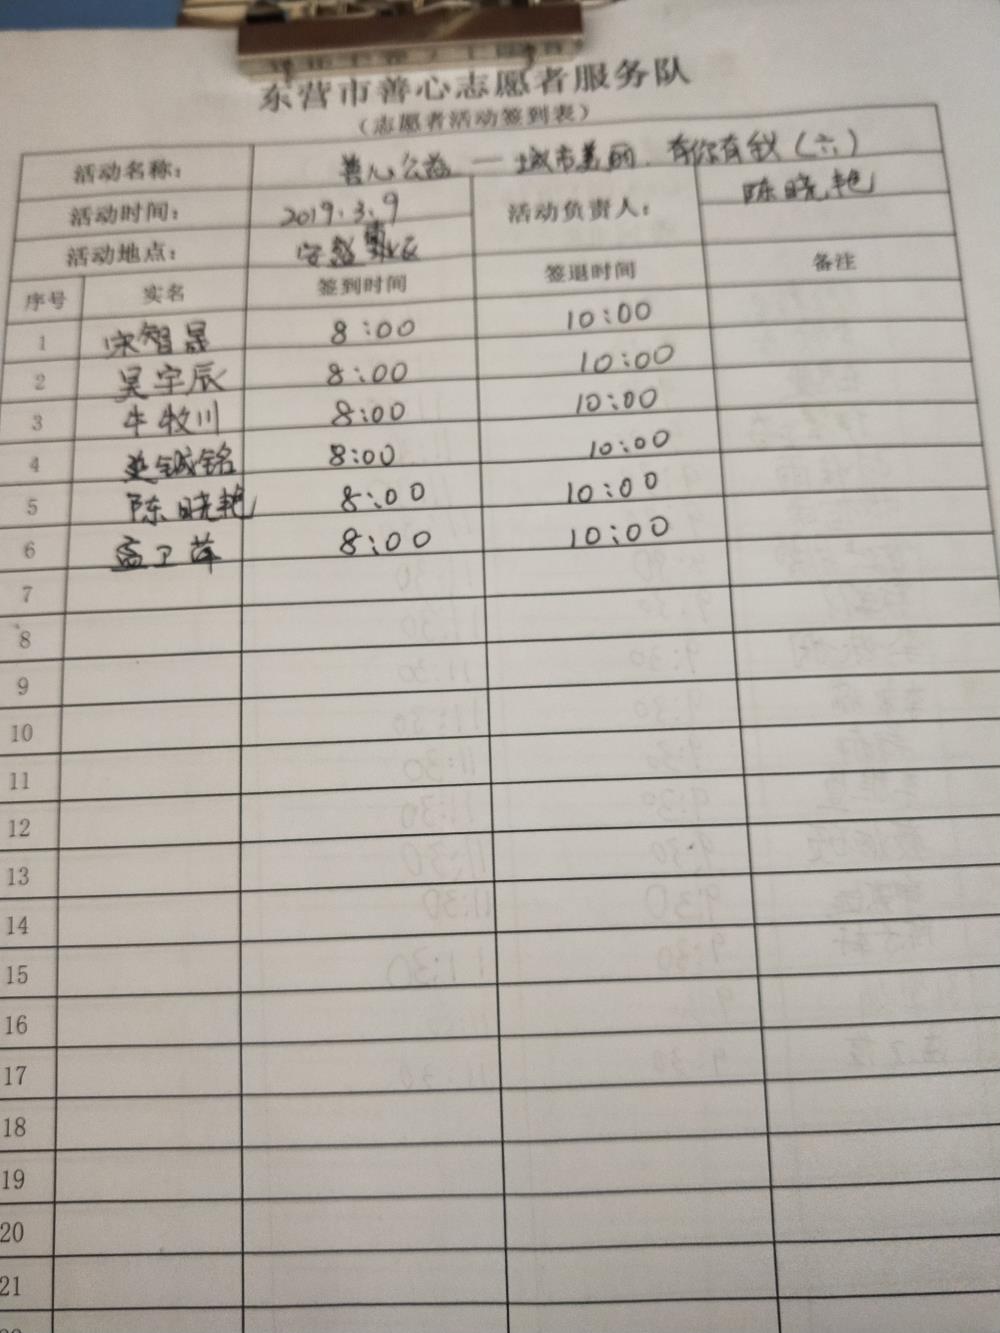 东营市善心志愿者服务队
（志愿者活动签到表）
活动名称： 善心公益 — 城市美丽.有你有我（六）
活动时间： 2019.3.9 活动负责人： 陈晓艳
活动地点： 安盛
序号 实名 签到时间 签退时间 备注
1 宋智晟 8:00 10:00
2 吴宇辰 8:00 10:00
3 牛牧川 8:00 10:00
4 铖铭 8:00 10:00
5 陈晓艳 8:00 10:00
6 孟卫萍 8:00 10:00
7
8
9
10
11
12
13
14
15
16
17
18
19
20
21